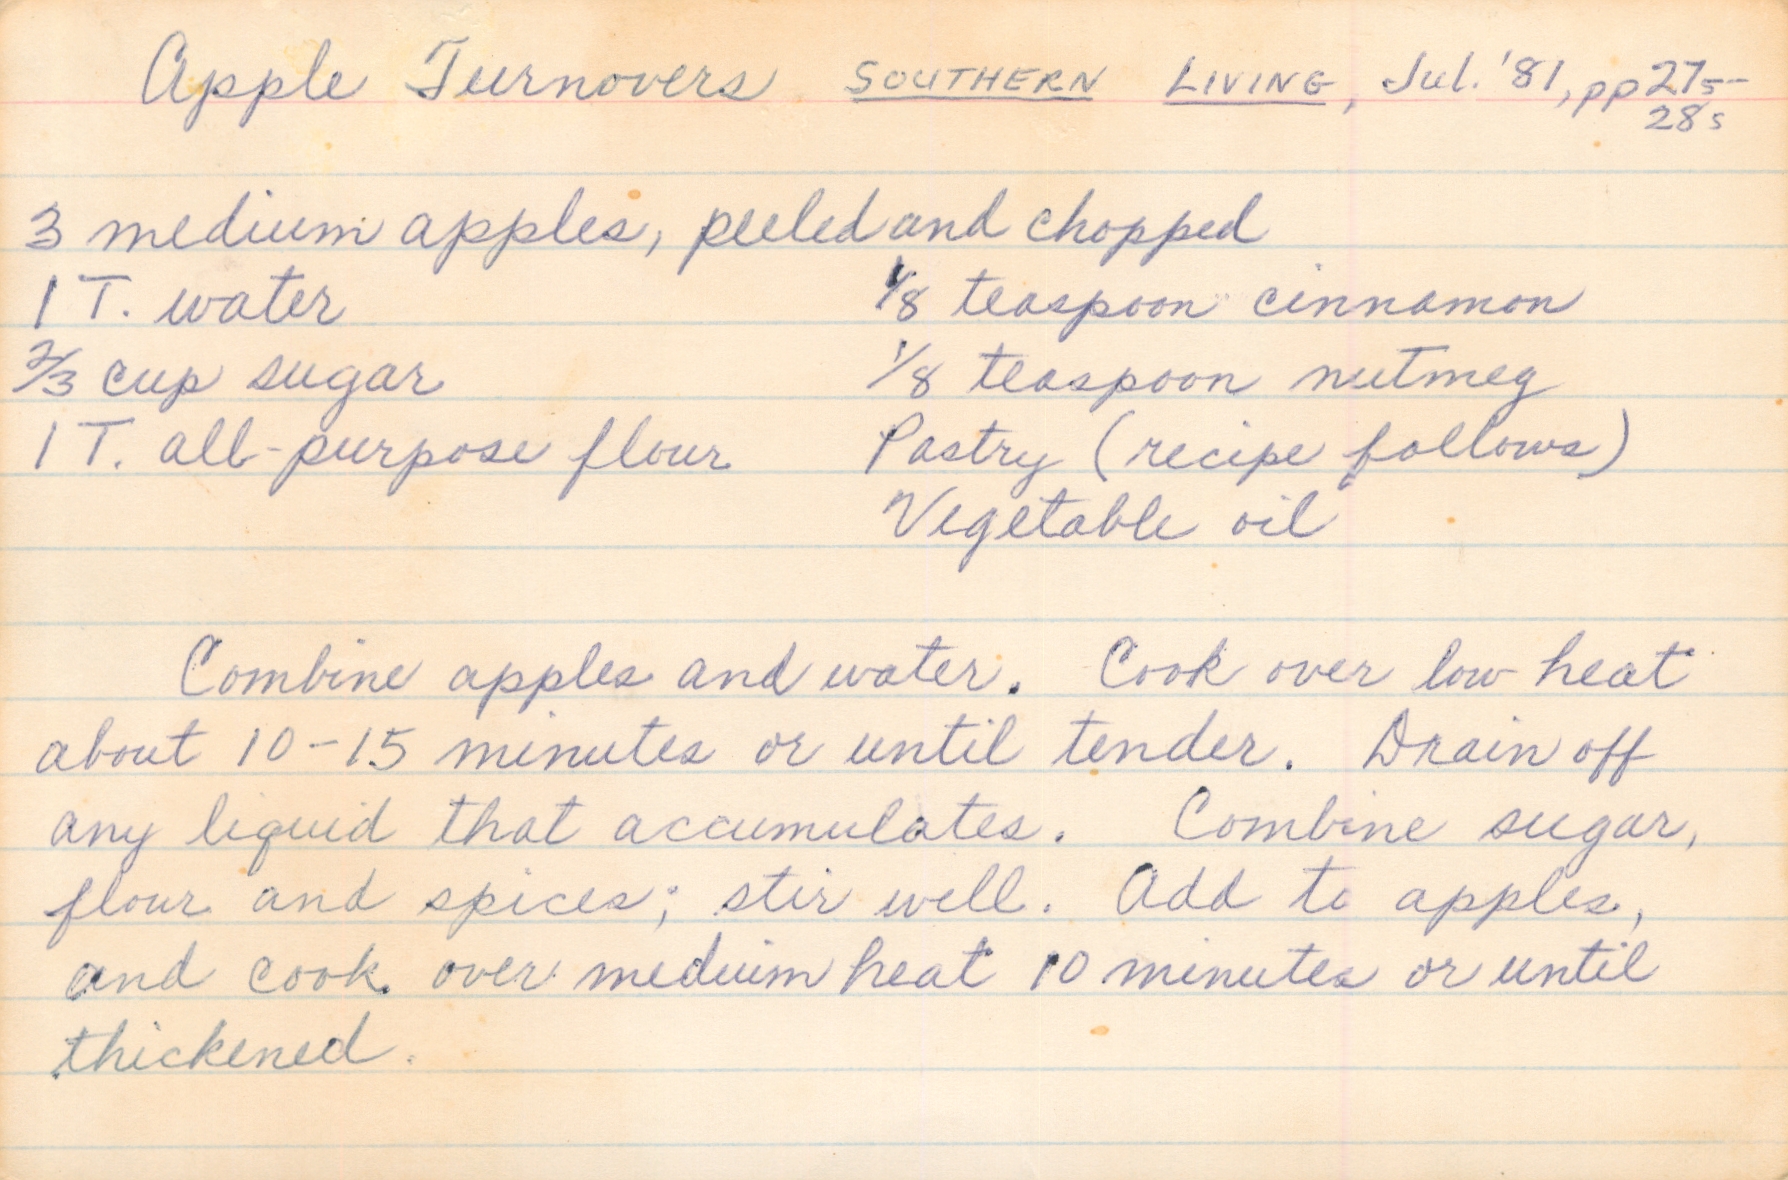 Apple Turnovers SOUTHERN LIVING, Jul. '81, pp 27s-
28s
3 medium apples, peeled and chopped
1 T. water 1/8 teaspoon cinnamon
2/3 cup sugar 1/8 teaspoon nutmeg
1 T. all-purpose flour Pastry (recipe follows)
Vegetable oil
Combine apples and water. Cook over low heat
about 10-15 minutes or until tender. Drain off
any liquid that accumulates. Combine sugar,
flour and spices; stir well. Add to apples,
and cook over medium heat 10 minutes or until
thickened.